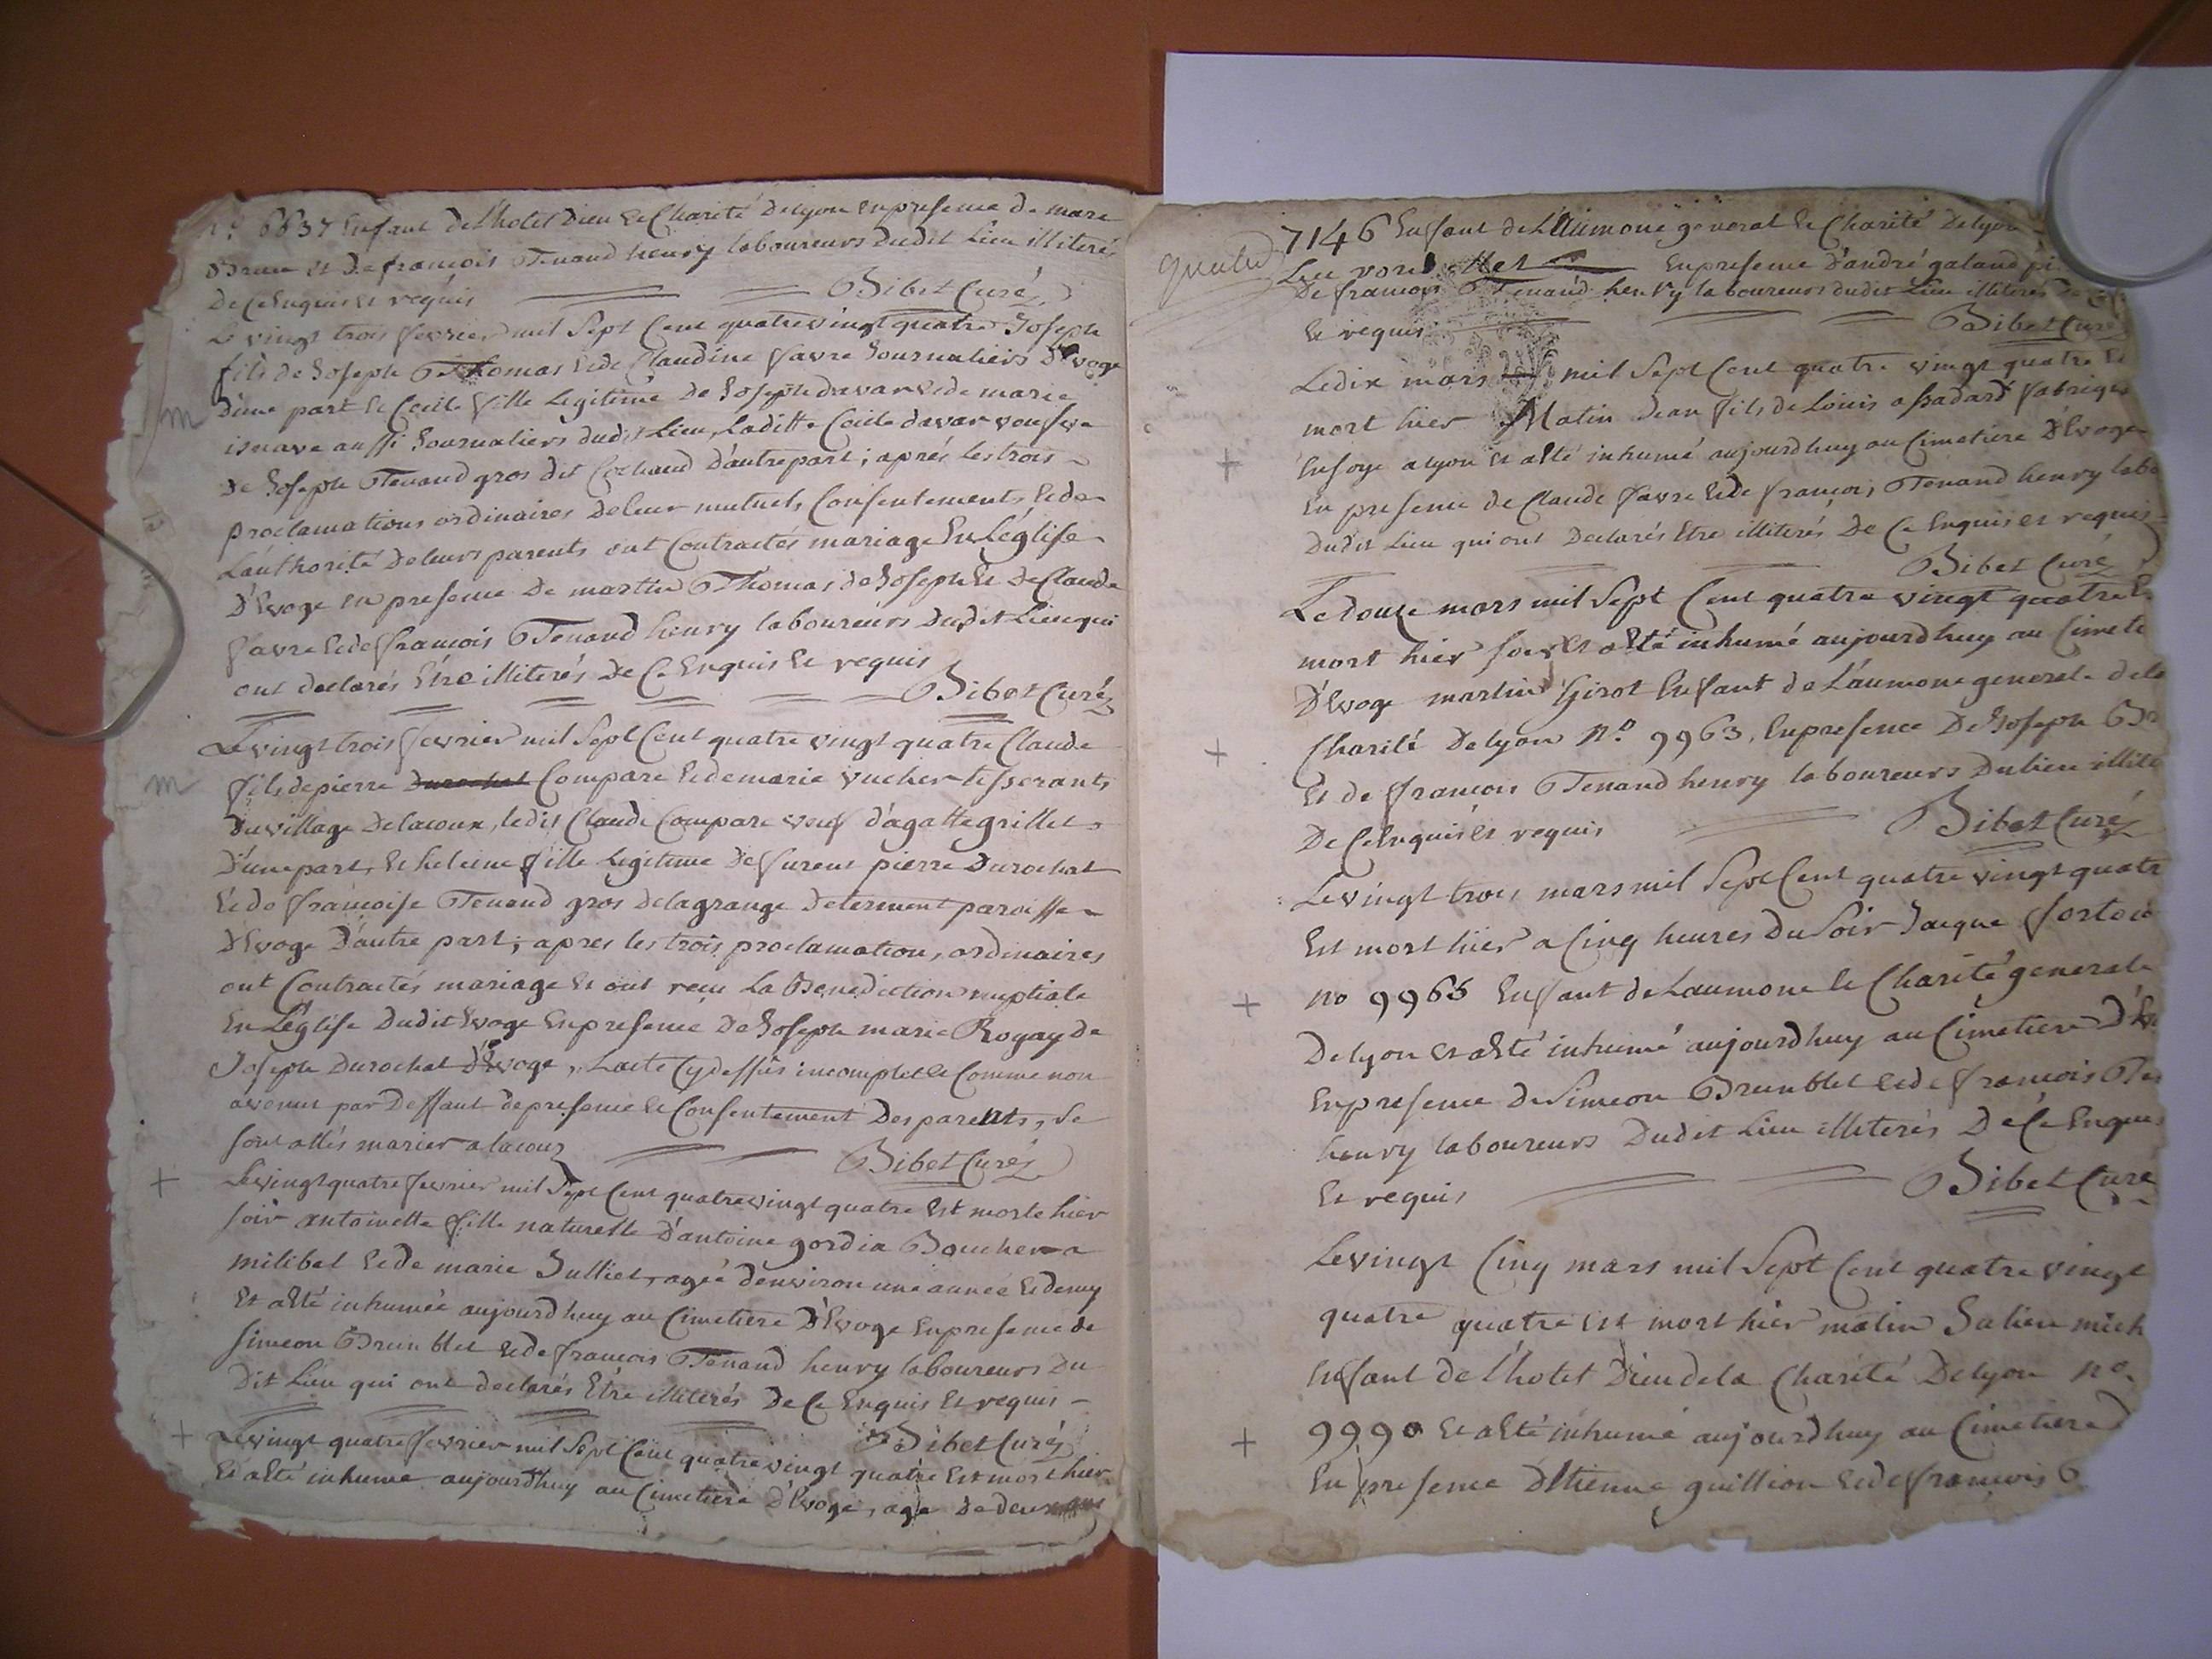 n.º 6637 Enfant de L'hotel Dieu et Charité de lyon en presence de marc
Brun et de francois Tenand henry laboureurs dudit Lieu illiterés
De ce Enquis et requis Bibet Curé
Le vingt trois fevrier mil sept Cent quatre vingt quatre Joseph
fils de Joseph Thomas et de Claudine favre Journaliers d'Evoge
D'une part et Cecile fille Legitime de Joseph davar et de marie
aussi Journaliers dudit Lieu, Laditte Cecile davar veufve
de Joseph Tenand gros dit Cochaud d'autre part; aprés les trois
proclamations ordinaires de leur mutuels Consentements et de
L'authorité de leurs parents ont Contractés mariage En L'église
D'Evoge en presence de marthe Thomas de Joseph et de Claude
favre et de francois Tenand henry laboureurs dudit Lieu qui
ont declarés Etre illiterés de Ce Enquis et requis
Bibet Curé
Le vingt trois fevrier mil sept Cent quatre vingt quatre Claude
fils de pierre Durochat Compare et de marie vucher tisserants
du village de lacoux, ledit Claude Compare veuf d'agatte grillet
D'une part, et heleine fille legitime de furent pierre Durochat
et de francoise Tenand gros de la grange de terment paroisse
D'Evoge D'autre part; apres les trois proclamations ordinaires
ont Contractés mariage et ont recu La Benediction nuptiale
En L'église dudit Evoge En presence de Joseph marie Rogay de
Joseph Durochat d'Evoge, L'acte Cy dessus incomplet et Comme non
avenus par Deffaut de presence et Consentement Des parents, se
sont allés marier a lacoux Bibet Curé
Le vingt quatre fevrier mil sept Cent quatre vingt quatre Est morte hier
soir antoinette fille naturelle d'antoine gordia Boucher a
milibel et de marie Julliet, agée d'environ une année et demy
Et a Eté inhumée aujourd'huy au Cimetiere D'Evoge En presence de
Simeon Brun blet et de francois Tenand henry laboureurs Du
Dit Lieu qui ont declarés Etre illiterés De Ce Enquis Et requis
Bibet Curé
Le vingt quatre fevrier mil sept Cent quatre vingt quatre Est mort hier
Et a Eté inhumé aujourd'huy au Cimetiere D'Evoge, age de deux ans
7146 Enfant de L'Aumone general et Charité De lyon
En presence D'andré galand
De francois Tenand henry laboureurs dudit Lieu illiterés de
Et requis Bibet Curé
Le dix mars mil Sept Cent quatre vingt quatre Est
mort hier Matin Jean fils de Louis assadard
En soye a lyon et a Eté inhumé aujourd'huy au Cimetiere D'Evoge
En presence de Claude favre et de francois Tenand henry labo
Dudit Lieu qui ont Declarés Etre illiterés De Ce Enquis et requis
Bibet Curé
Le douze mars mil Sept Cent quatre vingt quatre E
mort hier soir Et a Eté inhumé aujourd'huy au Cimeti
D'Evoge martin Girot Enfant de L'aumone generale de la
Charité De lyon N.º 9963, En presence De Joseph Br
Et de francois Tenand henry laboureurs Du lieu illite
De Ce Enquis et requis
Bibet Curé
Le vingt trois mars mil Sept Cent quatre vingt quatr
Est mort hier a Cinq heures Du Soir Jacque
no 9965 Enfant de Laumone et Charité generale
De lyon et a Eté inhumé aujourd'huy au Cimetiere D'Ev
En presence De Simeon Brun blet et de francois Ten
henry laboureurs Dudit Lieu illiterés De Ce Enquis
Et requis Bibet Curé
Le vingt Cinq mars mil Sept Cent quatre vingt
quatre quatre Est mort hier matin Julien mich
Enfant de L'hotel Dieu de la Charité De lyon no.
9990 Et a Eté inhumé aujourd'huy au Cimetiere
En presence D'Etienne guillion et de francois T